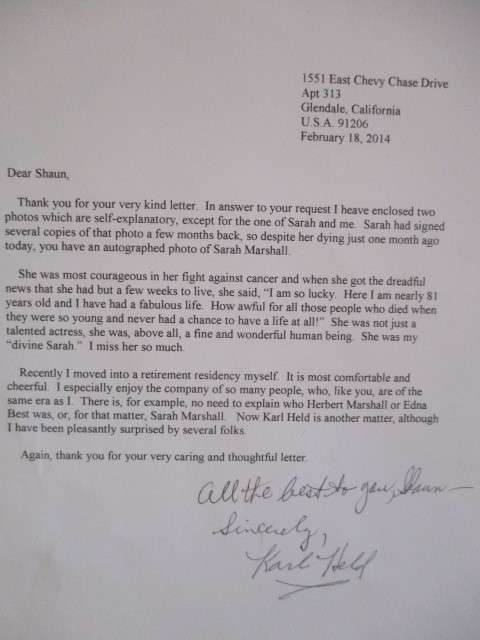 1551 East Chevy Chase Drive
Apt 313
Glendale, California
U.S.A. 91206
February 18, 2014
Dear Shaun,
Thank you for your very kind letter. In answer to your request I heave enclosed two
photos which are self-explanatory, except for the one of Sarah and me. Sarah had signed
several copies of that photo a few months back, so despite her dying just one month ago
today, you have an autographed photo of Sarah Marshall.
She was most courageous in her fight against cancer and when she got the dreadful
news that she had but a few weeks to live, she said, "I am so lucky. Here I am nearly 81
years old and I have had a fabulous life. How awful for all those people who died when
they were so young and never had a chance to have a life at all!" She was not just a
talented actress, she was, above all, a fine and wonderful human being. She was my
"divine Sarah." I miss her so much.
Recently I moved into a retirement residency myself. It is most comfortable and
cheerful. I especially enjoy the company of so many people, who, like you, are of the
same era as I. There is, for example, no need to explain who Herbert Marshall or Edna
Best was, or, for that matter, Sarah Marshall. Now Karl Held is another matter, although
I have been pleasantly surprised by several folks.
Again, thank you for your very caring and thoughtful letter.
All the best to you, Shaun —
Sincerely,
Karl Held